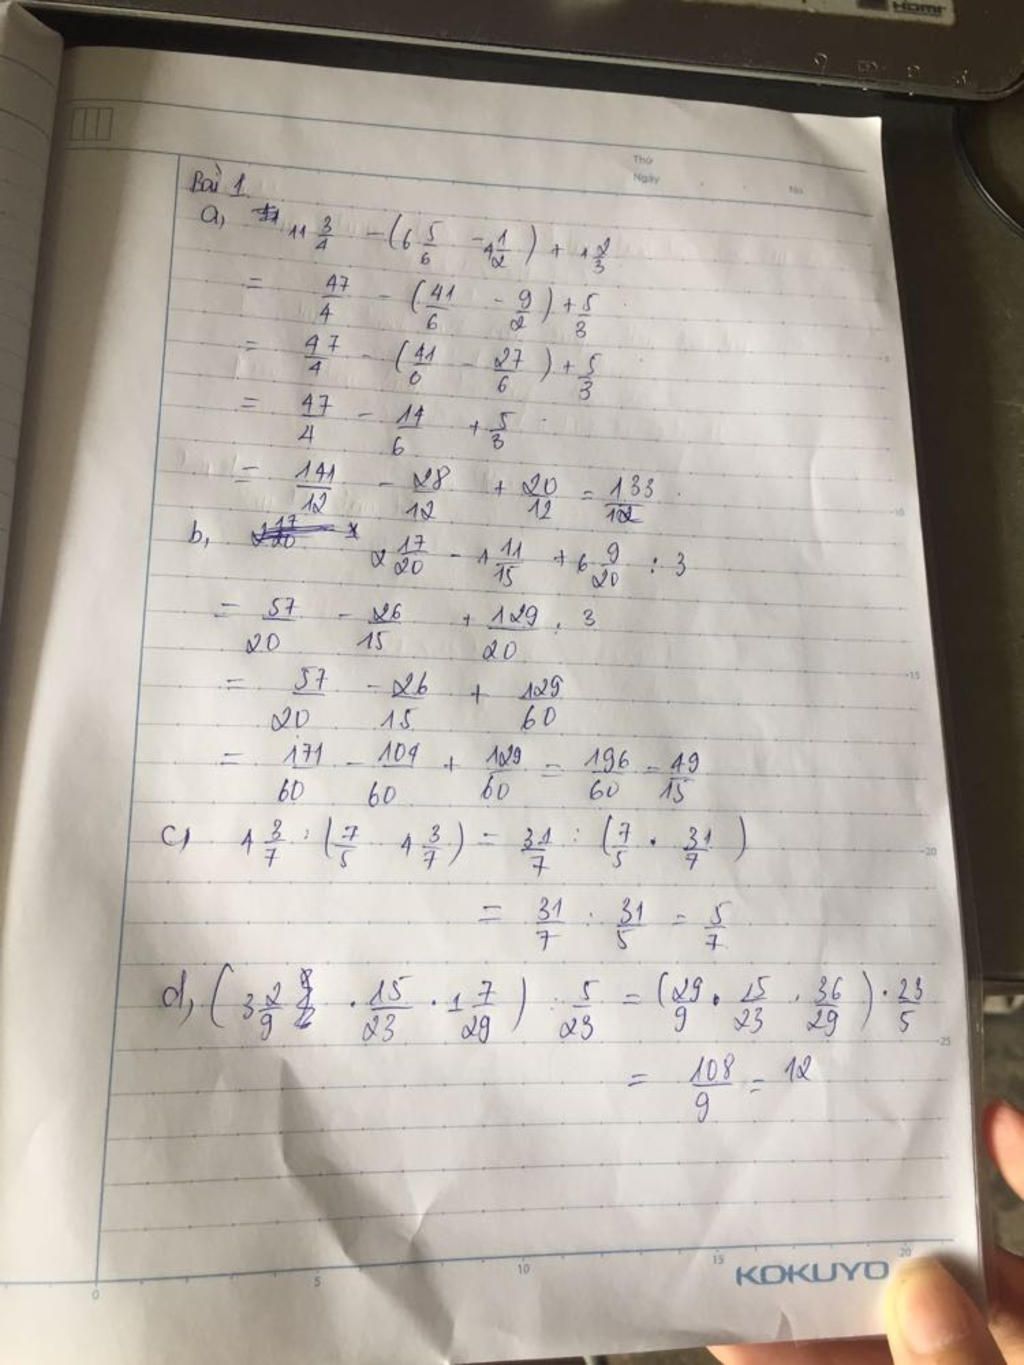 HDMI
Thứ
Ngày
No
Bài 1
a, 11 3/4 - (6 5/6 - 4 1/2) + 1 2/3
= 47/4 - (41/6 - 9/2) + 5/3
= 47/4 - (41/6 - 27/6) + 5/3
= 47/4 - 14/6 + 5/3
= 141/12 - 28/12 + 20/12 = 133/12
b, 2 17/20 - 1 11/15 + 6 9/20 : 3
= 57/20 - 26/15 + 129/20 : 3
= 57/20 - 26/15 + 129/60
= 171/60 - 104/60 + 129/60 = 196/60 = 49/15
c, 4 3/7 : (7/5 4 3/7) = 31/7 : (7/5 . 31/7)
= 31/7 : 31/5 = 5/7
d, (3 2/9 . 15/23 . 1 7/29) : 5/23 = (29/9 . 15/23 . 36/29) . 23/5
= 108/9 = 12
5
10
15
20
25
0 5 10 15 20
KOKUYO